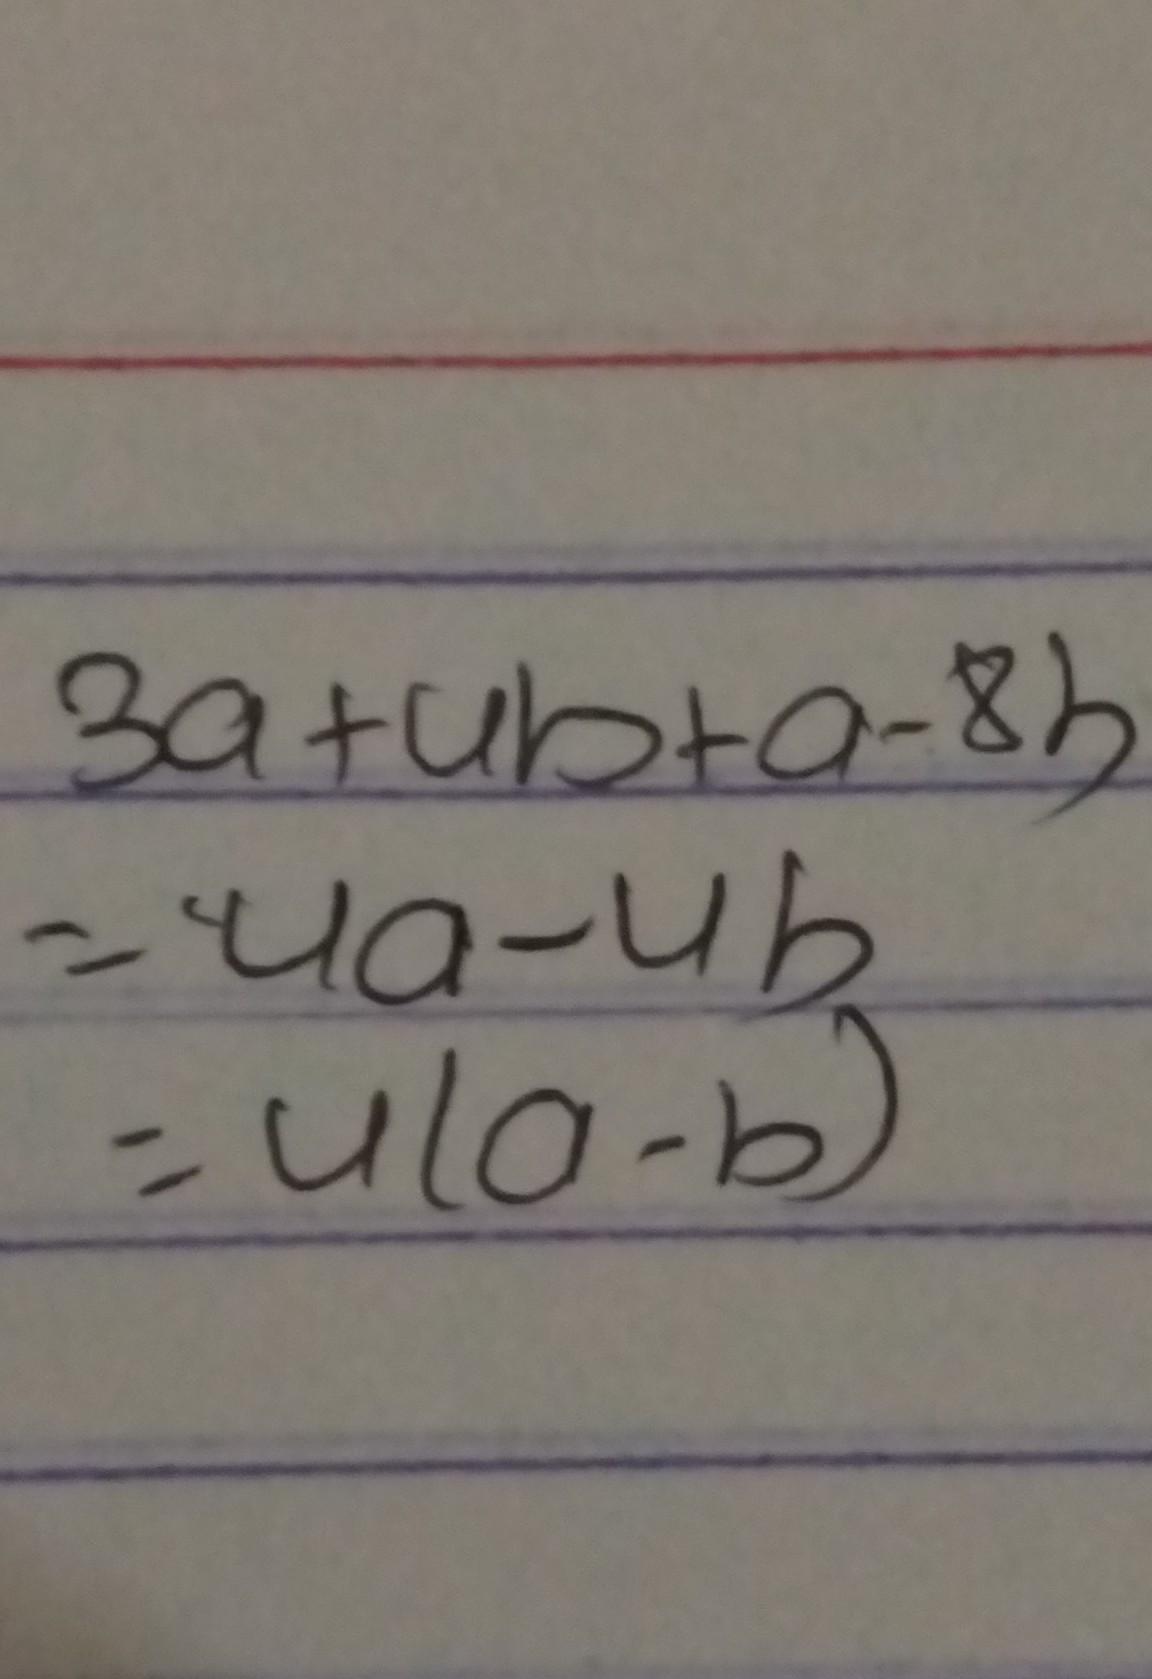 3a+4b+a-8b
=4a-4b
=4(a-b)